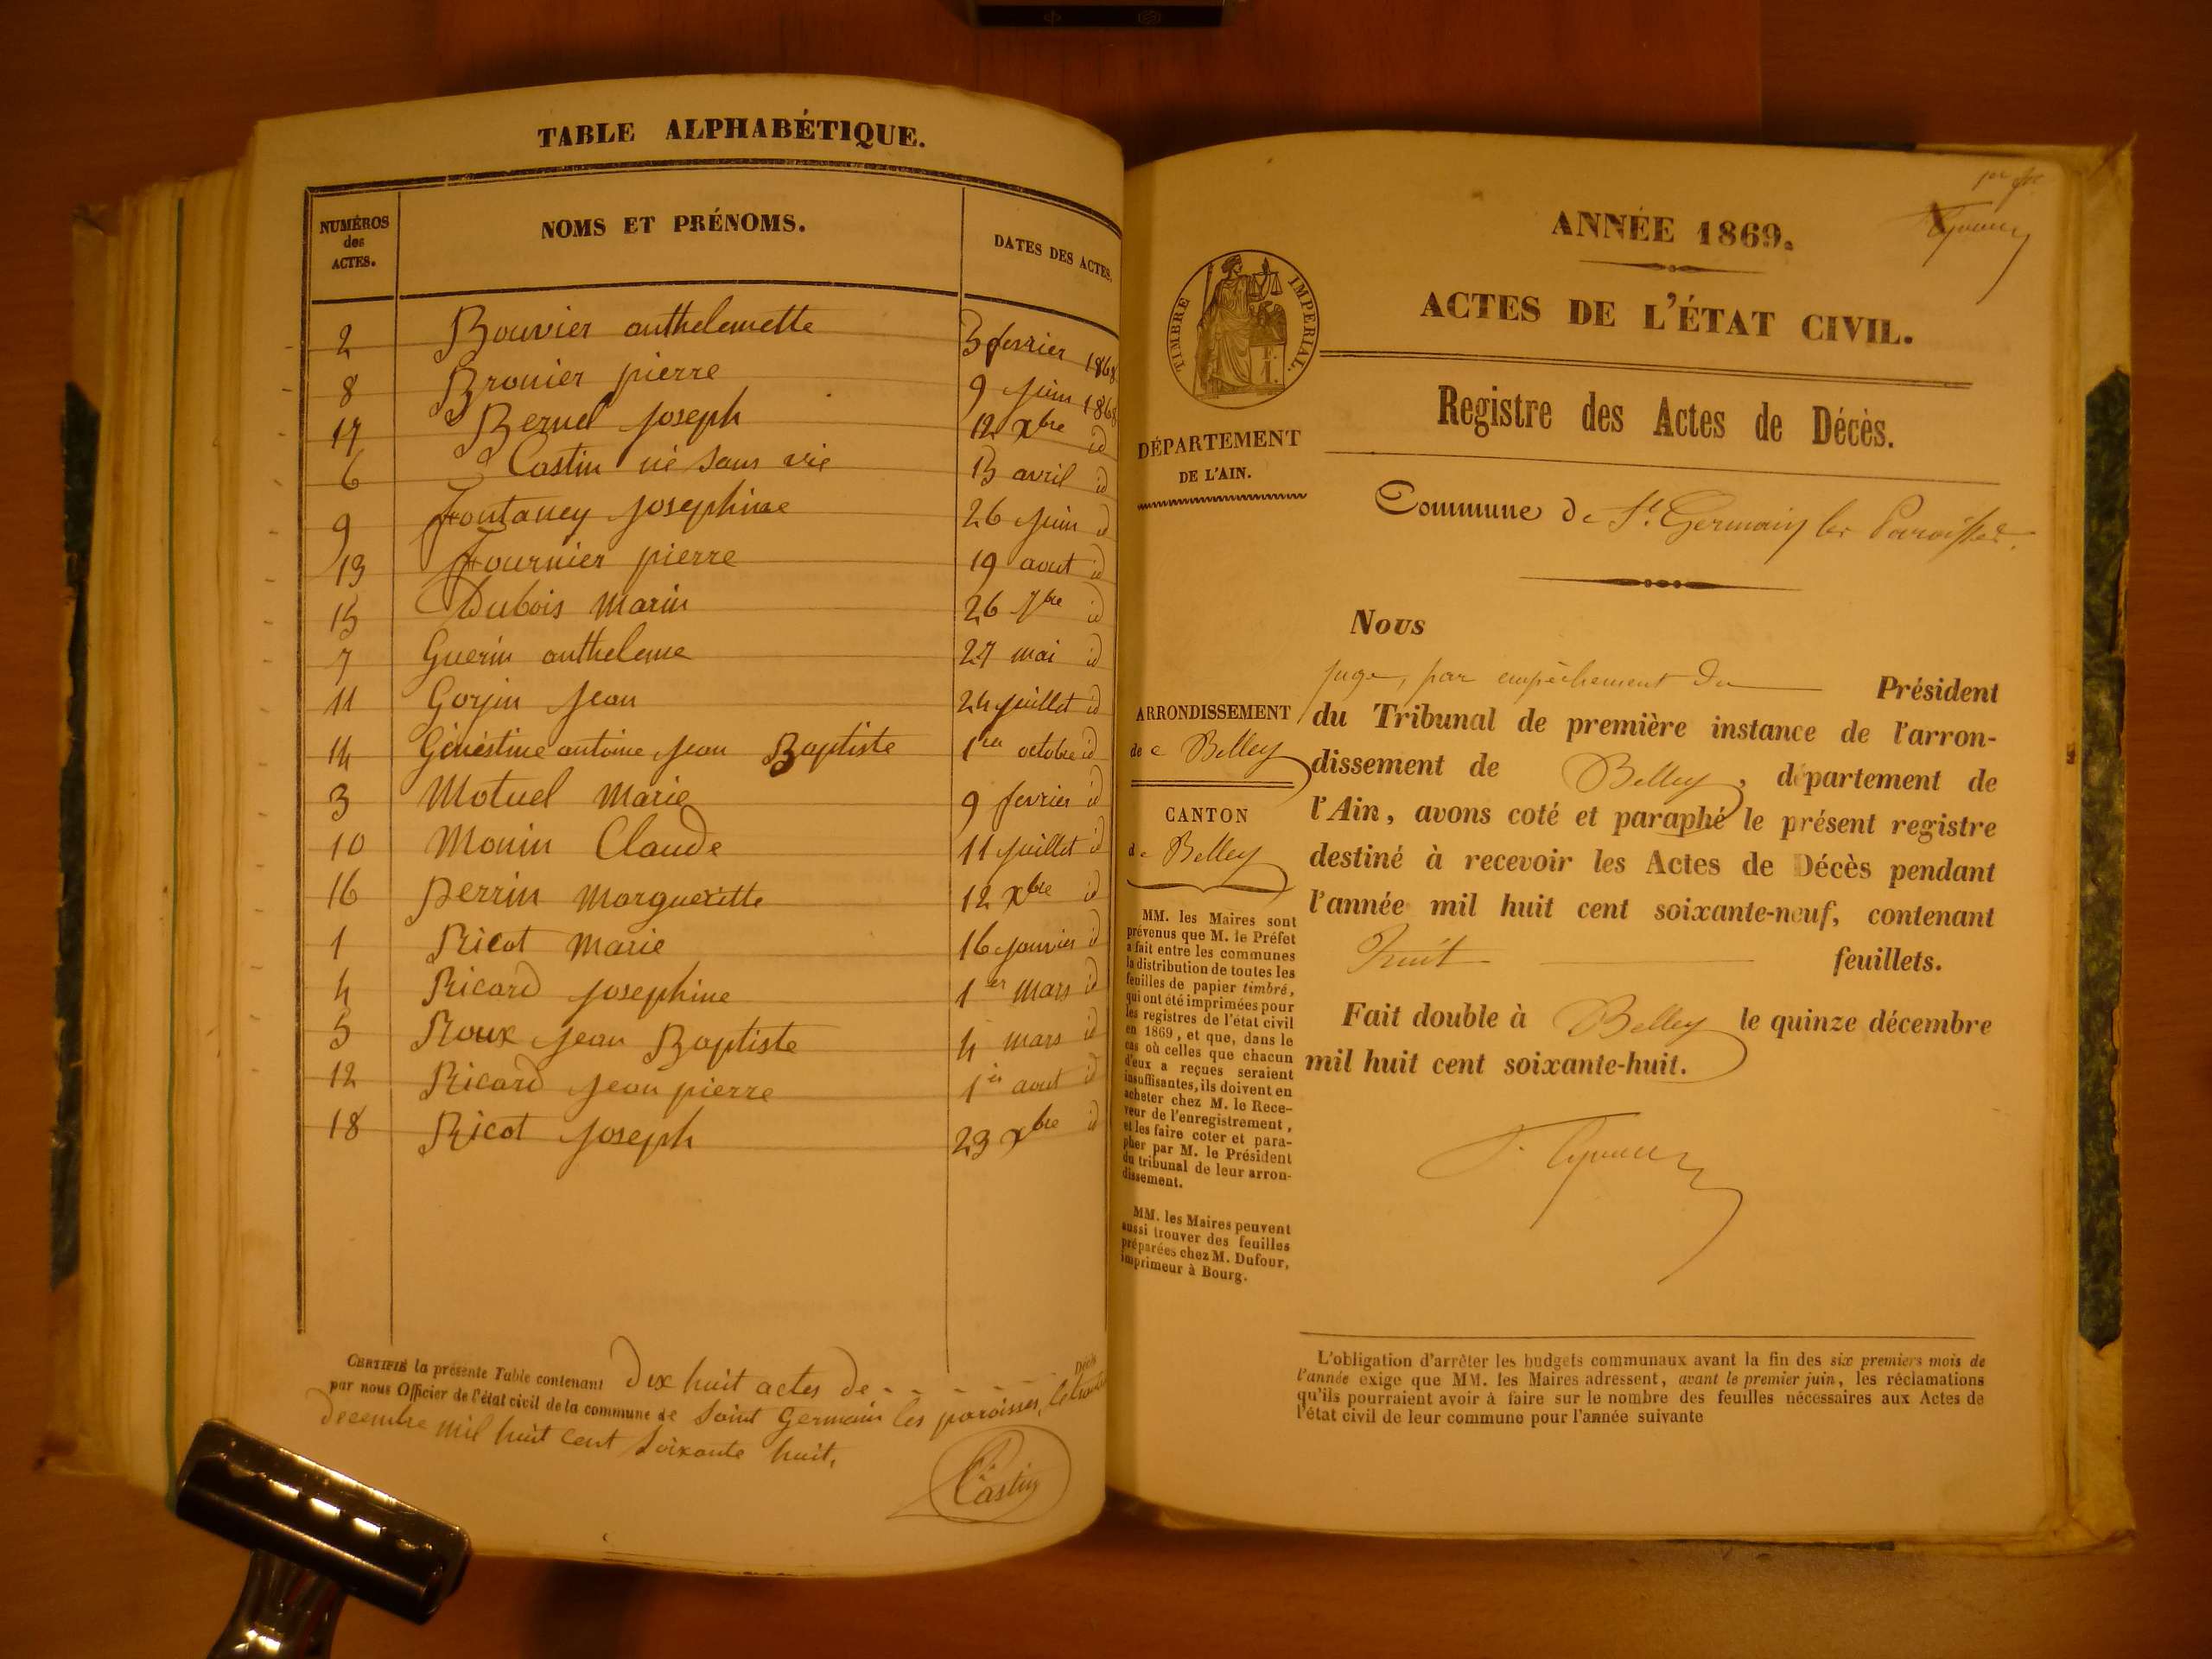 TABLE ALPHABÉTIQUE.
NUMÉROS
des
ACTES.
NOMS ET PRÉNOMS.
DATES DES ACTES.
2 Bouvier anthelemette 3 fevrier 1868
8 Brouier pierre 9 juin 1868
17 Bernel joseph 12 Xbre id
6 Castin né sans vie 13 avril id
9 Fontaney josephine 26 juin id
13 Fournier pierre 19 aout id
15 Dubois Marin 26 id
7 Guerin antheleme 27 mai id
11 Gorjin jean 24 juillet id
14 Génestine antoine jean Baptiste 1er octobre id
3 Motuel Marie 9 fevrier id
10 Monin Claude 11 juillet id
16 Perrin Margueritte 12 Xbre id
1 Ricot Marie 16 janvier id
4 Ricard josephine 1er mars id
5 Roux jean Baptiste 4 mars id
12 Ricard jean pierre 1er aout id
18 Ricot joseph 23 Xbre id
CERTIFIÉ la présente Table contenant dix huit actes de Décès
par nous Officier de l'état civil de la commune de Saint Germain les paroisses, le
decembre mil huit cent soixante huit,
Castin
1er
ANNÉE 1869.
ACTES DE L'ÉTAT CIVIL.
TIMBRE IMPERIAL.
Registre des Actes de Décès.
DÉPARTEMENT
DE L'AIN.
Commune de St. Germain les Paroisses.
Nous
juge, par empêchement du Président
du Tribunal de première instance de l'arron-
dissement de Belley, département de
l'Ain, avons coté et paraphé le présent registre
destiné à recevoir les Actes de Décès pendant
l'année mil huit cent soixante-neuf, contenant
huit feuillets.
Fait double à Belley le quinze décembre
mil huit cent soixante-huit.
ARRONDISSEMENT
de Belley
CANTON
de Belley
MM. les Maires sont
prévenus que M. le Préfet
a fait entre les communes
la distribution de toutes les
feuilles de papier timbré,
qui ont été imprimées pour
les registres de l'état civil
en 1869, et que, dans le
cas où celles que chacun
d'eux a reçues seraient
insuffisantes, ils doivent en
acheter chez M. le Rece-
veur de l'enregistrement,
et les faire coter et para-
pher par M. le Président
du tribunal de leur arron-
dissement.
MM. les Maires peuvent
aussi trouver des feuilles
préparées chez M. Dufour,
imprimeur à Bourg.
L'obligation d'arrêter les budgets communaux avant la fin des six premiers mois de
l'année exige que MM. les Maires adressent, avant le premier juin, les réclamations
qu'ils pourraient avoir à faire sur le nombre des feuilles nécessaires aux Actes de
l'état civil de leur commune pour l'année suivante